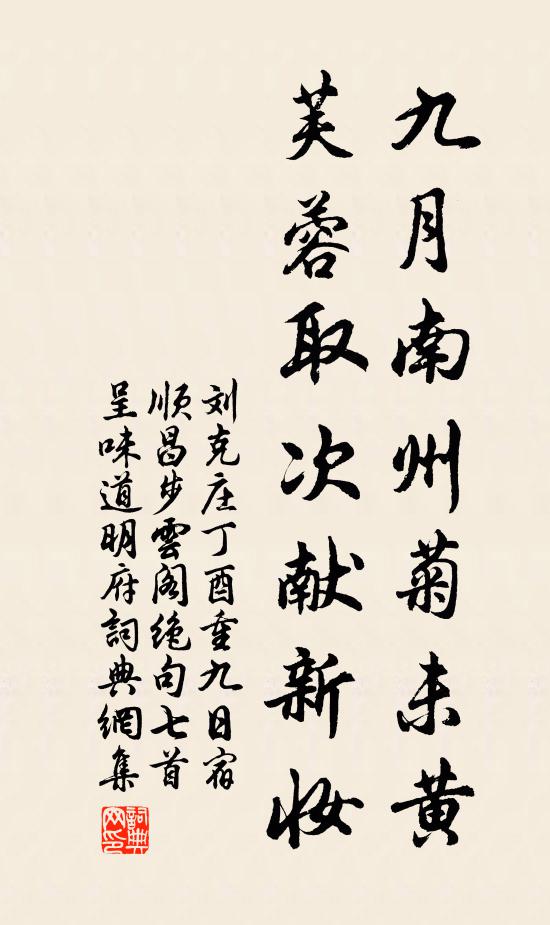 九月南州菊未黄
芙蓉取次献新妆
刘克庄丁酉重九日宿
顺昌步雲阁绝句七首
呈味道明府詞典網集
詞典
网印